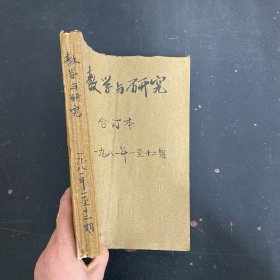 教学与研究
合订本
一九八一年一至十二期
教学与研究
一九八一年一至十二期